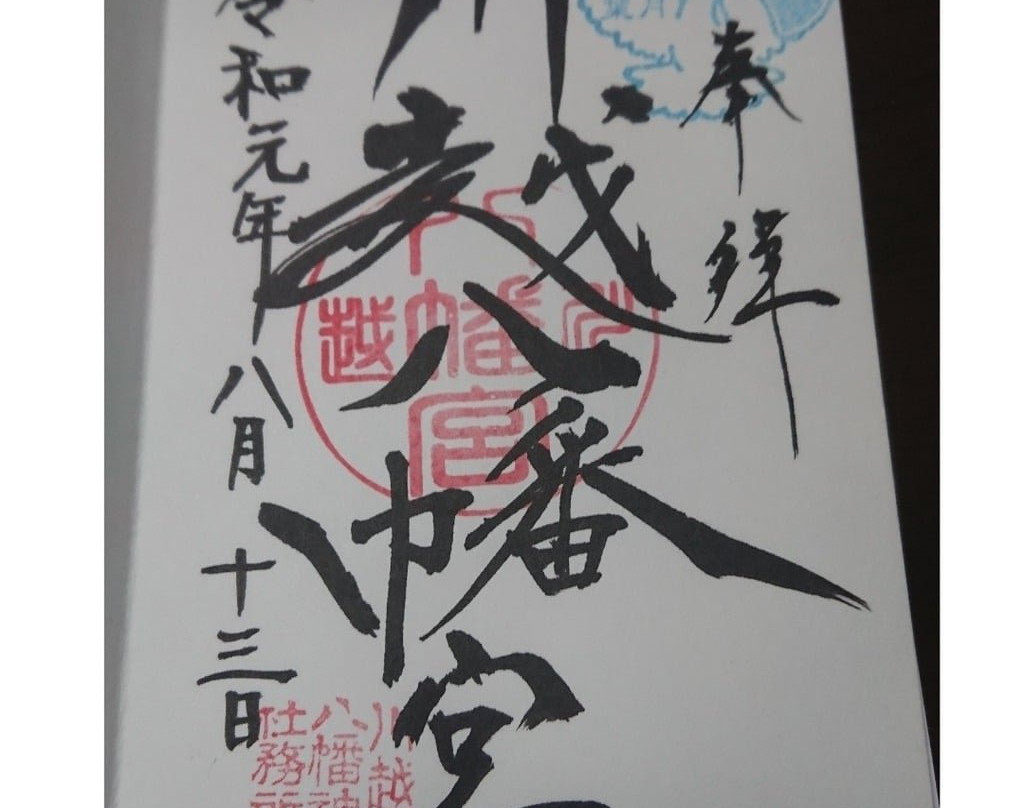 奉拝
葉月
川越八幡宮
令和元年八月十三日
川越
八幡宮
川越
八幡神
仕務所